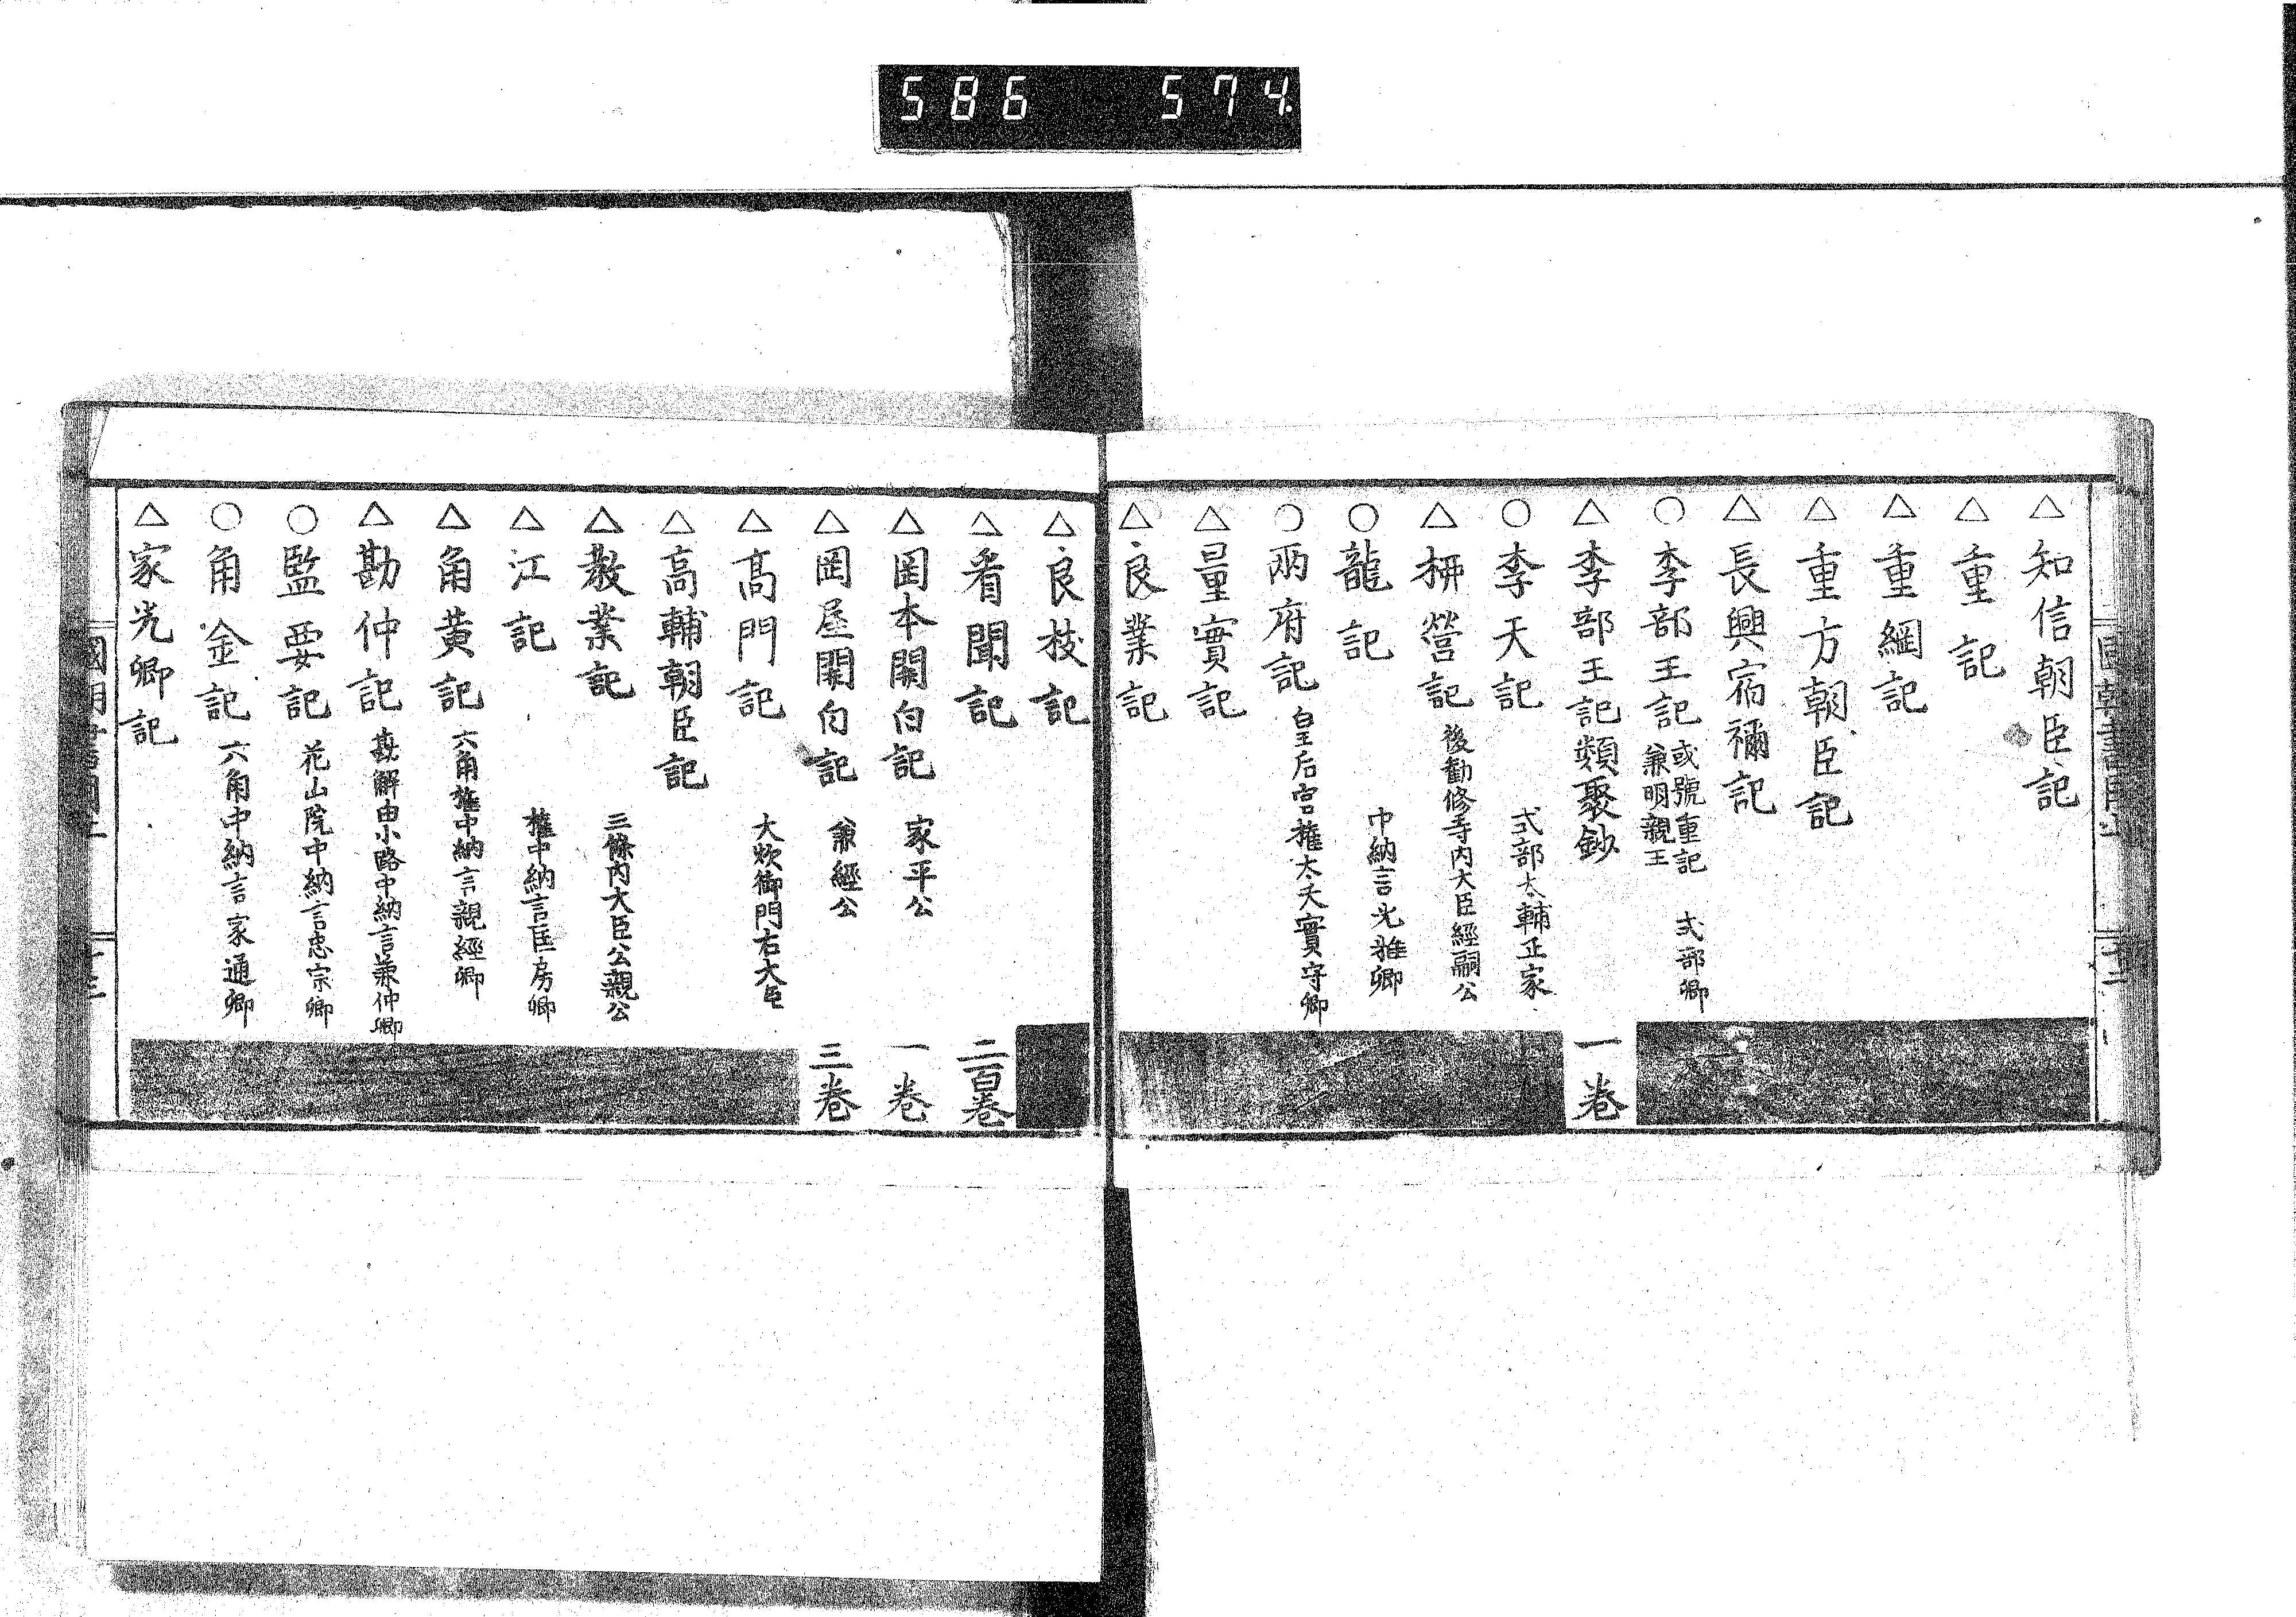 586 574
△知信朝臣記
△重記
△重綱記
△重方朝臣記
△長興宿禰記
○李部王記 或號重記 兼明親王 式部卿
△李部王記類聚鈔 一卷
○李天記 式部太輔正家
△栟營記 後勸修寺内大臣經嗣公
○龍記 中納言光雅卿
○兩府記 皇后宮權太夫實守卿
△量實記
△良業記
△良枝記
△看聞記 二百卷
△岡本關白記 家平公 一卷
△岡屋關白記 兼經公 三卷
△髙門記 大炊御門右大臣
△高輔朝臣記
△教業記 三條内大臣公親公
△江記 權中納言匡房卿
△角黄記 六角權中納言親經卿
△勘仲記 勘解由小路中納言兼仲卿
○監要記 花山院中納言忠宗卿
○角金記 六角中納言家通卿
△家光卿記